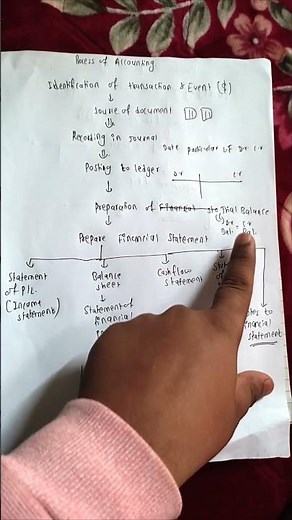 Process of Accounting
Identification of transaction & Event ($)
Source of document
Recording in Journal
Date particular LF Dr. C.r
Posting to ledger
D.r C.r
Preparation of Financial Trial Balance
Dr. C.r
Bal. = Bal.
Prepare Financial Statement
Statement of P/L (Income statement)
Balance sheet
Statement of financial
Cashflow statement
financial statement